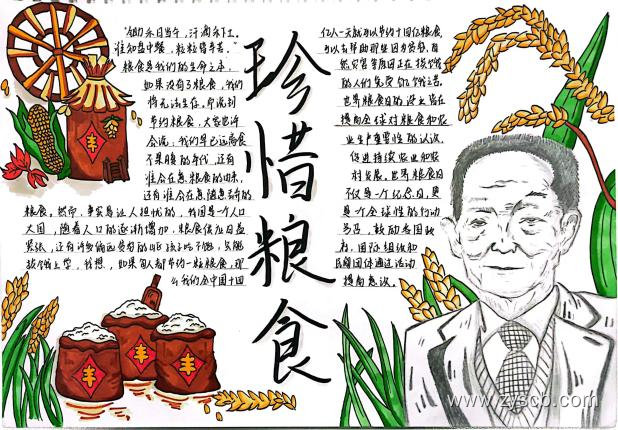 珍惜粮食
"锄禾日当午,汗滴禾下土。
谁知盘中餐,粒粒皆辛苦。"
粮食是我们的生命之本,
如果没有了粮食,我们
将无法生存。所说到
节约粮食,大家也许
会说,我们早已远离食
不果腹的年代,还有
谁会在意粮食的由来,
还有谁会在意随意丢弃的
粮食。然而,事实是让人担忧的,我国是一个人口
大国,随着人口的逐渐增加,粮食供应日益
紧张,还有许多
放饿上学,我想,如果每人都节约一粒粮食,那
么我们全中国十四
亿人一天就可以节约十四亿粒粮食
可以去帮助那些因为贫穷,自
然灾害等原因正在挨饿
的人们免受饥饿之苦。
世界粮食日的设立旨在
提高全球对粮食和农
业生产重要性的认识,
促进持续农业和农
村发展。世界粮食日
不仅是一个纪念日,更
是一个全球性的行动
号召,鼓励各国政
府,国际组织和
民间团体通过活动
提高意识。
丰
丰
丰
丰
www.zyscb.com